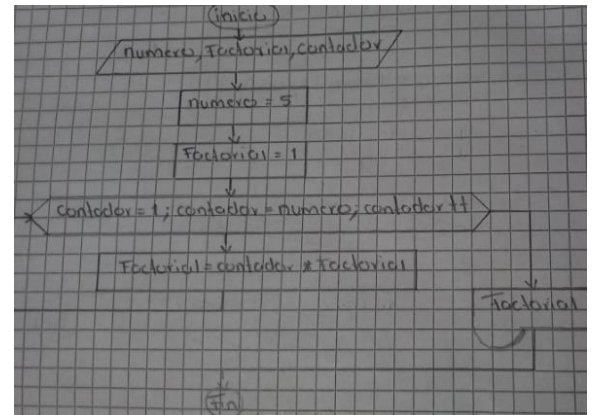 inicio
numero, Factorial, contador
numero = 5
Factorial = 1
contador = 1; contador = numero; contador ++
Factorial = contador * Factorial
Factorial
Fin